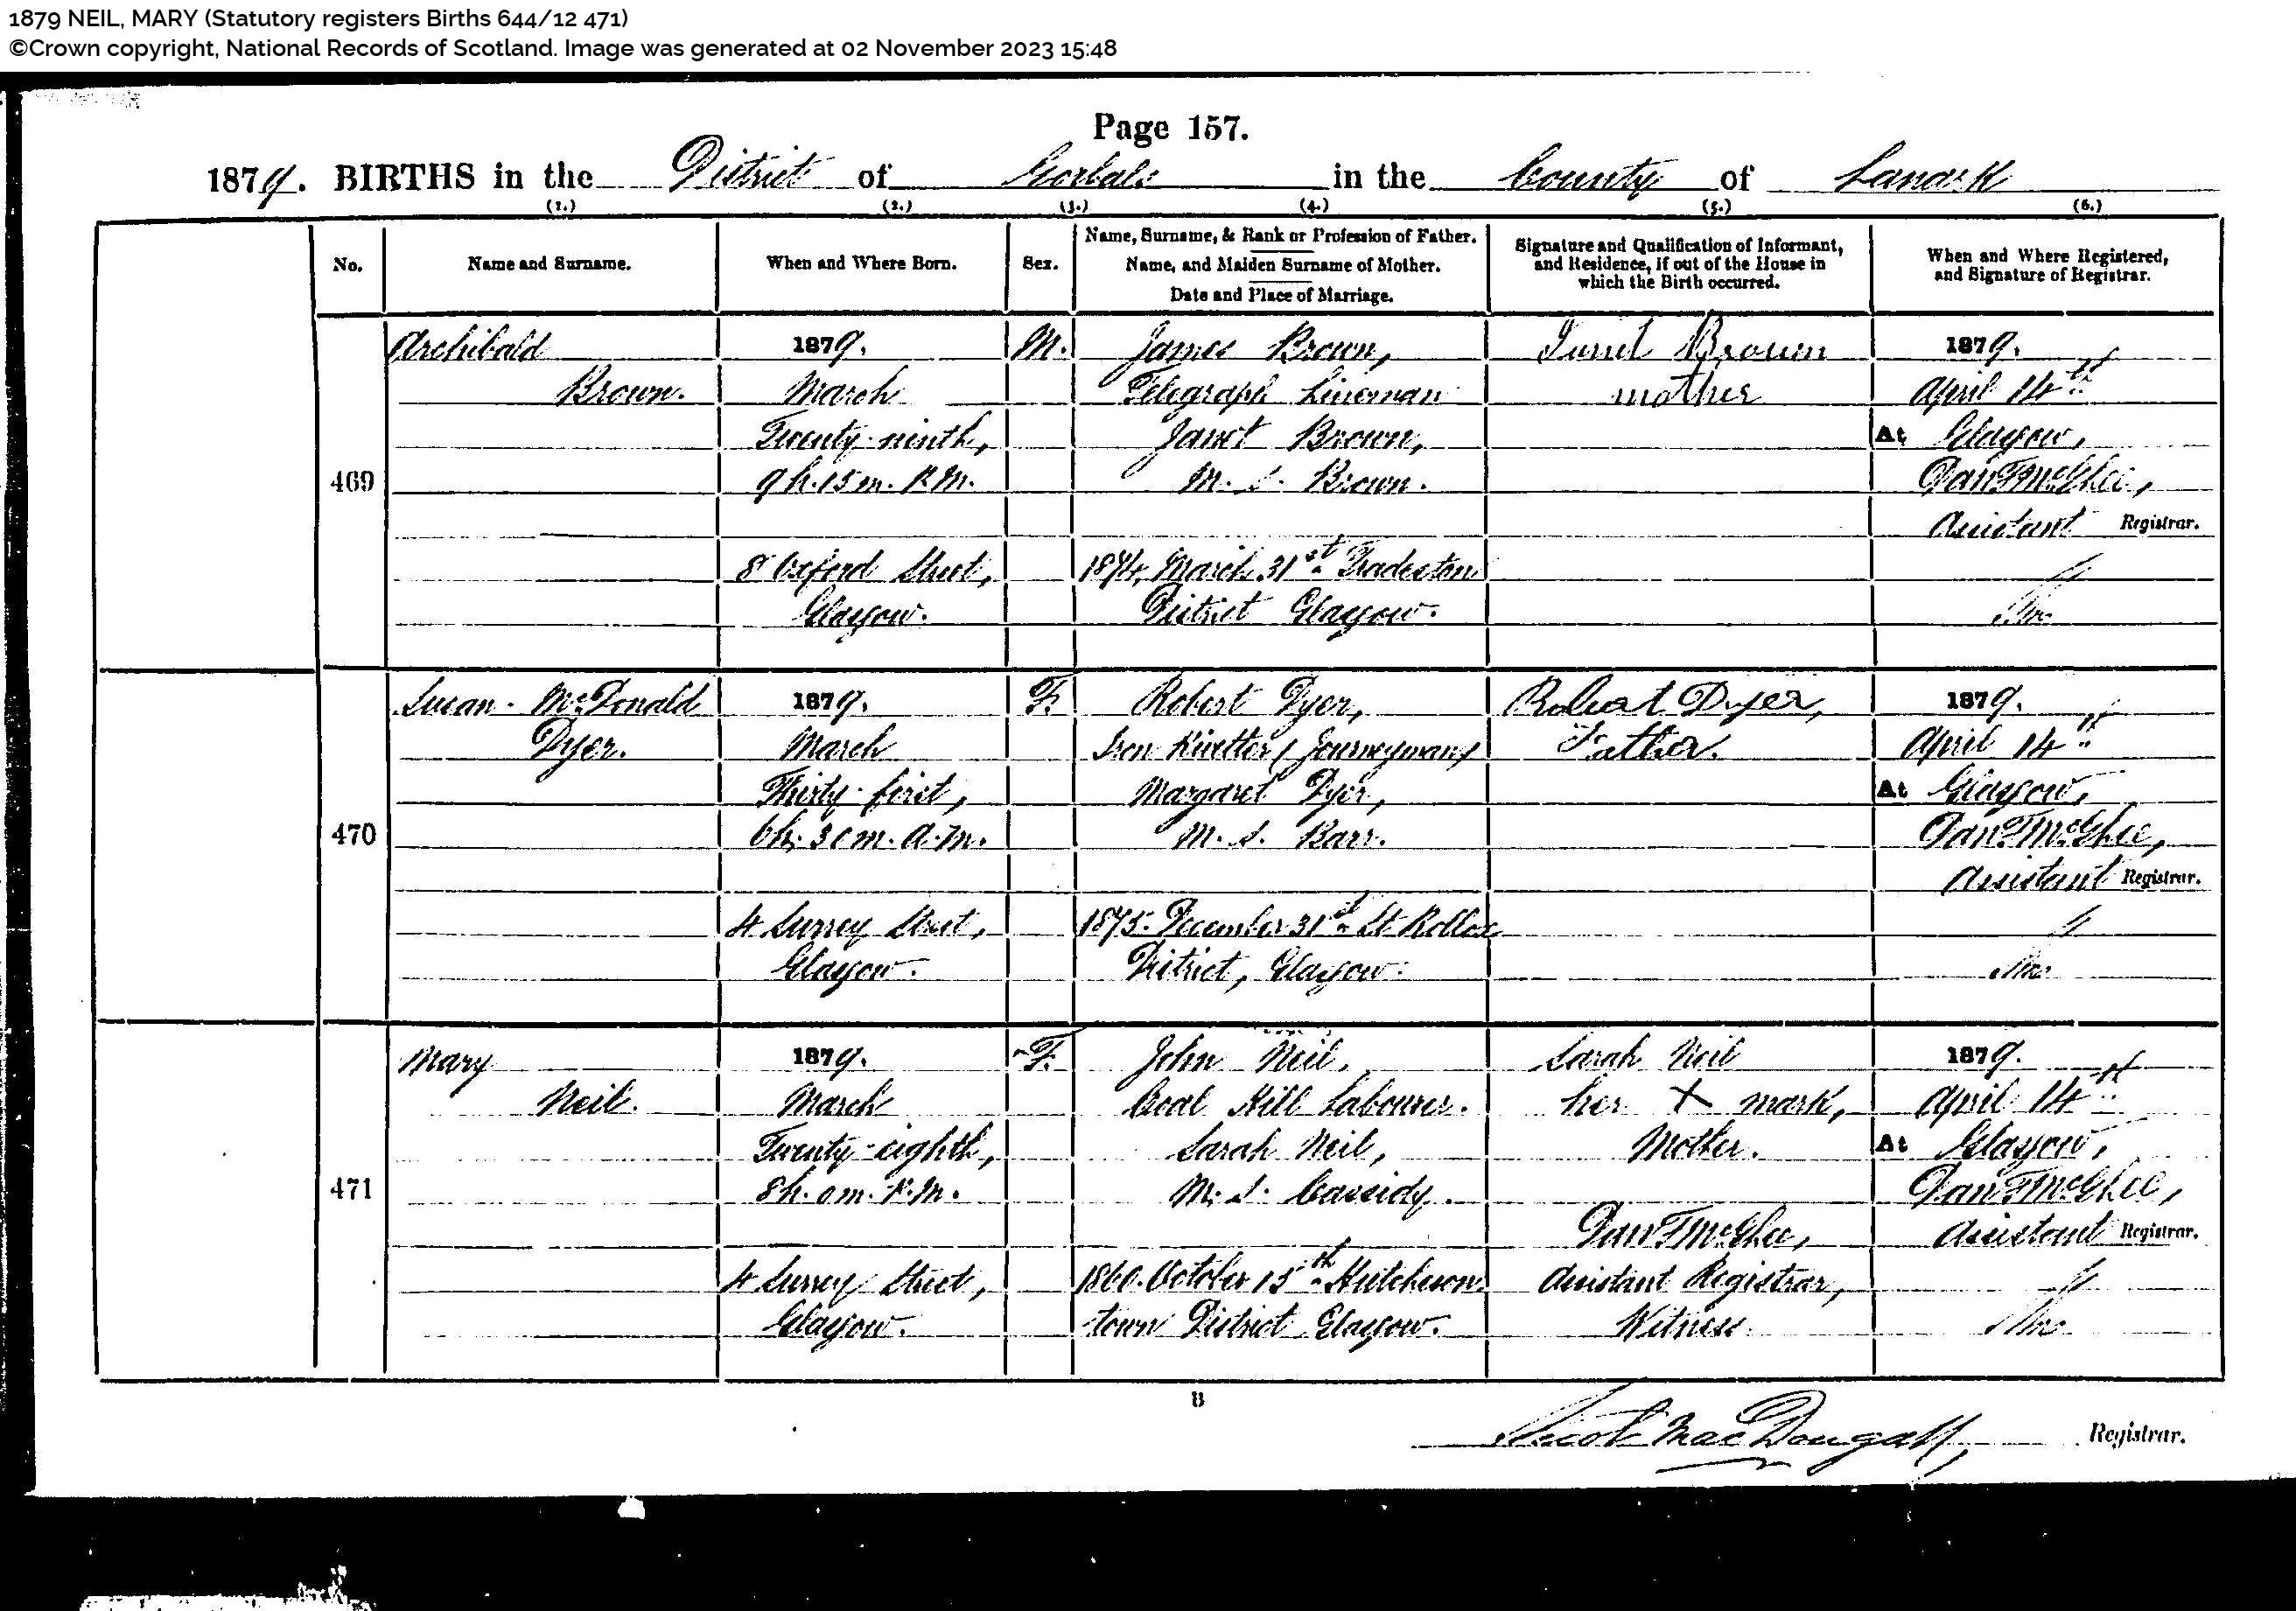 1879 NEIL, MARY (Statutory registers Births 644/12 471)
©Crown copyright, National Records of Scotland. Image was generated at 02 November 2023 15:48
Page 157.
1879. BIRTHS in the District of Gorbals in the County of Lanark
(1.) (2.) (3.) (4.) (5.) (6.)
No.
Name and Surname.
When and Where Born.
Sex.
Name, Surname, & Rank or Profession of Father.
Name, and Maiden Surname of Mother.
Date and Place of Marriage.
Signature and Qualification of Informant,
and Residence, if out of the House in
which the Birth occurred.
When and Where Registered,
and Signature of Registrar.
469
Archibald
Brown.
1879.
March
Twenty-ninth,
9 h. 15 m. P.M.
8 Oxford Street,
Glasgow.
M.
James Brown,
Telegraph Lineman
Janet Brown,
M. S. Brown.
1874, March 31st Tradeston
District Glasgow.
Janet Brown
mother
1879.
April 14th
At Glasgow,
Danl. F. McGhee,
Assistant Registrar.
470
Susan McDonald
Dyer.
1879.
March
Thirty-first,
6 h. 30 m. A.M.
4 Surrey Street,
Glasgow.
F.
Robert Dyer,
Iron Rivetter (Journeyman)
Margaret Dyer,
M. S. Barr.
1875. December 31st St Rollox
District, Glasgow.
Robert Dyer,
Father.
1879.
April 14th
At Glasgow,
Danl. F. McGhee,
Assistant Registrar.
471
Mary
Neil.
1879.
March
Twenty-eighth,
8 h. 0 m. P.M.
4 Surrey Street,
Glasgow.
F.
John Neil,
Coal Hill Labourer.
Sarah Neil,
M. S. Cassidy.
1860. October 15th Hutcheson-
town District Glasgow.
Sarah Neil
her X mark,
Mother.
Danl. F. McGhee,
Assistant Registrar,
Witness
1879.
April 14th
At Glasgow,
Danl. F. McGhee,
Assistant Registrar.
B
MacDougall, Registrar.